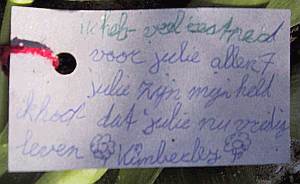 ik heb veel respect
voor julie allen7
julie zijn mijn held
ik hod dat julie nu vrdij
leven Kimberley